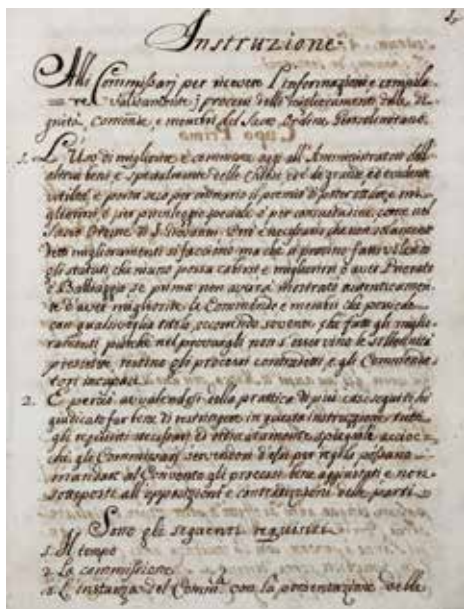 Instruzione.
Alli Commissarj per ricevere l'informazioni e compila
= re validamente i processi delli miglioramenti delle di
gnità, comende, e membri del Sacro Ordine Gerosolimitano.
Capo Primo
1. L'Uso di migliorare è commune oggi all'Amministratori dell'
altrui beni e spetialmente delle Chiese ed è di grande ed evidente
utilità e porta seco per il premio di poter ottare e mi
gliorirsi o per privileggio speciale o per consuetudine, come nel
Sacro Ordine di S. Giovanni. Onde è necessario che non solamente
detti miglioramenti si faccino ma che si provino fatti volendo
gli statuti che niuno possa cabirsi e migliorirsi o aver Priorato
ò Balliaggio se prima non averà mostrato autenticamen
te d'aver migliorate le Commende e membri che possiede
con qualsivoglia titolo, occorrendo sovente che fatti gli miglio
ramenti poiche nel provargli non s'osservino le solennità
prescritte, restino gli processi contradetti e gli Commenda
tori incapaci.
2. E perciò avvalendosi della prattica di più casi seguiti hò
giudicato far bene di restringere in questa instruzzione tutti
gli requisiti necessarj di distintamente spiegarli accioc
che gli Commissarj servendosi d'essi per regola possano
mandare al Convento gli processi bene aggiustati e non
sottoposti all'opposizioni e contradizzioni delle parti.
Sono gli seguenti requisiti
1. Il tempo
2. La commissione
3. L'instanza del Comm.re con la presentazione delle